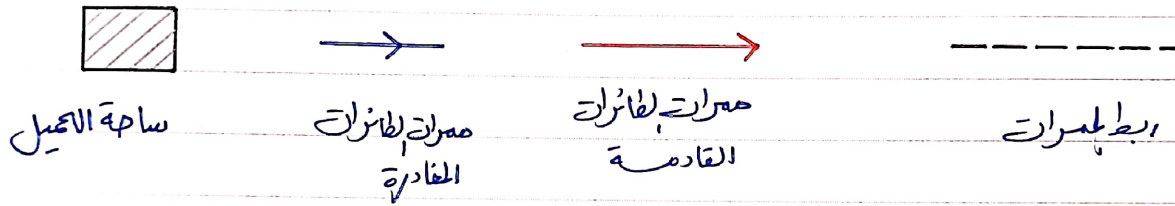 ربط الممرات
ممرات الطائرات
القادمة
ممرات الطائرات
المغادرة
ساحة التحميل